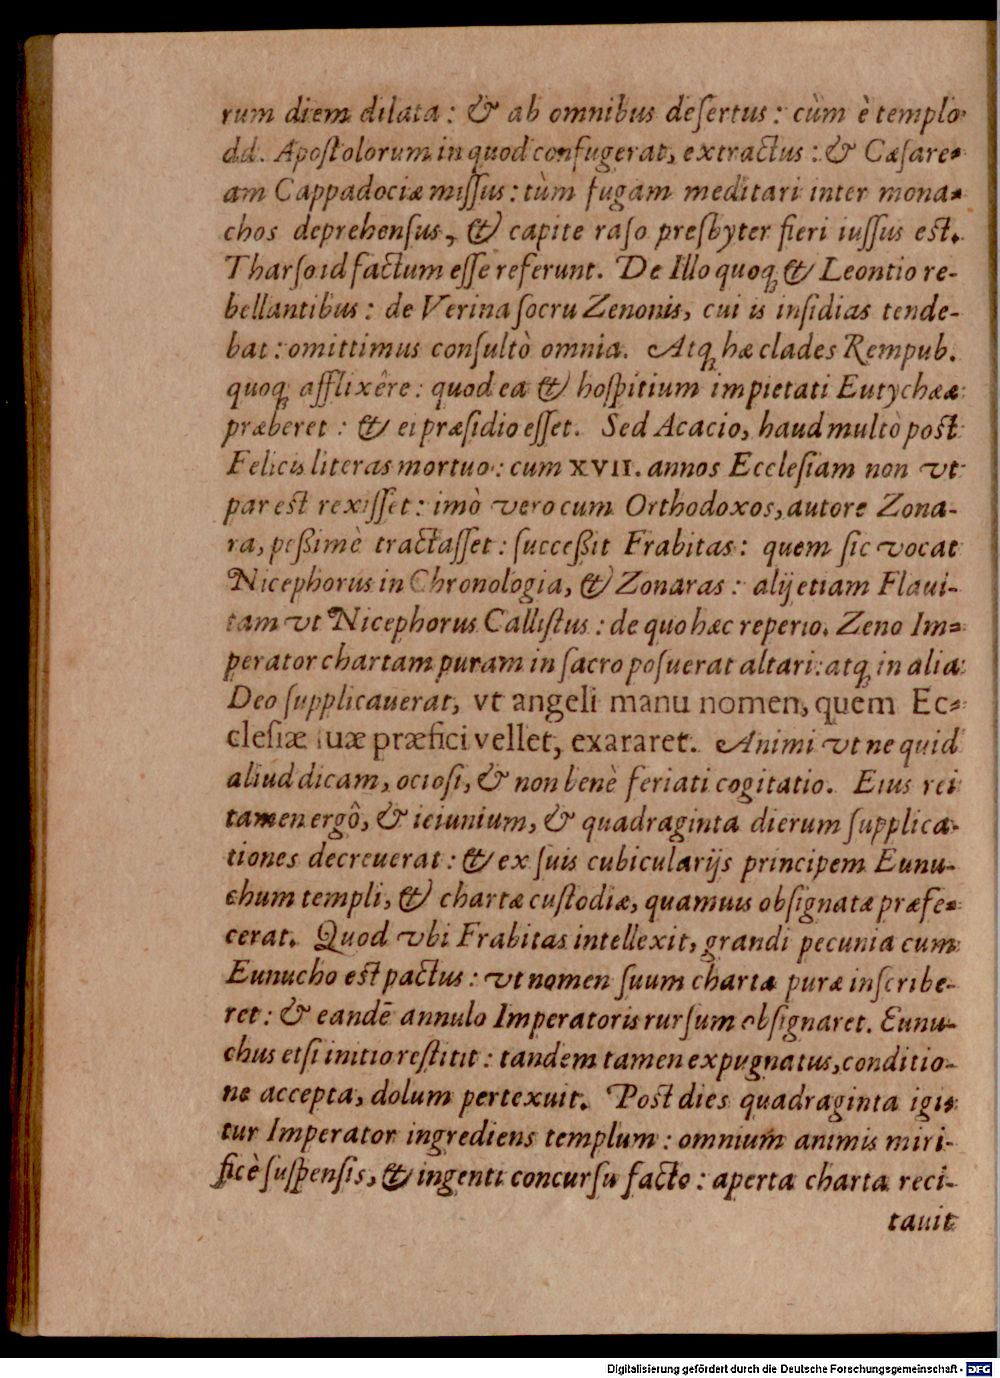 rum diem dilata: & ab omnibus deſertus: cùm è templo
dd. Apoſtolorum in quod confugerat, extractus: & Cæſare-
am Cappadociæ miſſus: tùm fugam meditari inter mona-
chos deprehenſus, & capite raſo presbyter fieri iuſſus eſt.
Tharſo id factum eſſe referunt. De Illo quoq; & Leontio re-
bellantibus: de Verina ſocru Zenonis, cui is inſidias tende-
bat: omittimus conſultò omnia. Atq; hæ clades Rempub.
quoq; afflixêre: quod ea & hoſpitium impietati Eutychææ
præberet: & ei præſidio eſſet. Sed Acacio, haud multò poſt
Felicis literas mortuo: cum XVII. annos Eccleſiam non vt
par eſt rexiſſet: imò vero cum Orthodoxos, autore Zona-
ra, peßimè tractaſſet: ſucceßit Frabitas: quem ſic vocat
Nicephorus in Chronologia, & Zonaras: alij etiam Flaui-
tam vt Nicephorus Calliſtus: de quo hæc reperio. Zeno Im-
perator chartam puram in ſacro poſuerat altari: atq; in alia
Deo ſupplicauerat, vt angeli manu nomen, quem Ec-
cleſiæ ſuæ præfici vellet, exararet. Animi vt ne quid
aliud dicam, ocioſi, & non benè feriati cogitatio. Eius rei
tamen ergô, & ieiunium, & quadraginta dierum ſupplica-
tiones decreuerat: & ex ſuis cubicularijs principem Eunu-
chum templi, & chartæ cuſtodiæ, quamuis obſignatæ præfe-
cerat. Quod vbi Frabitas intellexit, grandi pecunia cum
Eunucho eſt pactus: vt nomen ſuum chartæ puræ inſcribe-
ret: & eandē annulo Imperatoris rurſum obſignaret. Eunu-
chus etſi initio reſtitit: tandem tamen expugnatus, conditio-
ne accepta, dolum pertexuit. Poſt dies quadraginta igi-
tur Imperator ingrediens templum: omnium animis miri-
ficè ſuſpenſis, & ingenti concurſu facto: aperta charta reci-
tauit
Digitalisierung gefördert durch die Deutsche Forschungsgemeinschaft - DFG